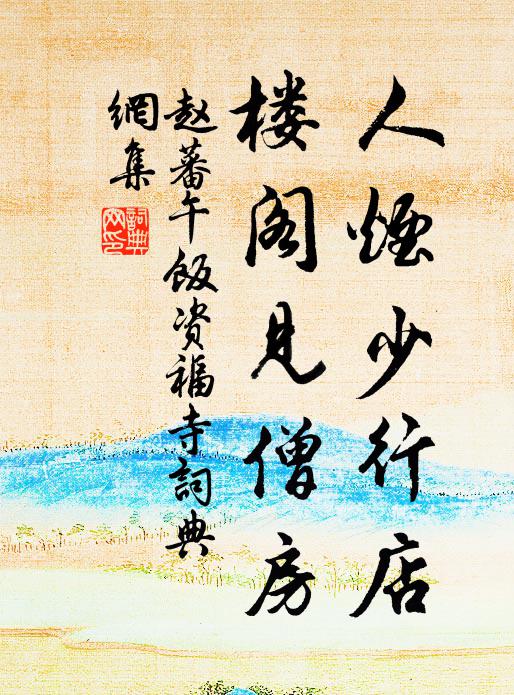 人煙少行店
楼阁見僧房
赵蕃午飯资福寺詞典
網集
詞典
网印